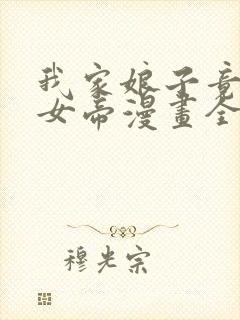 我家娘子竟
女帝漫畫全
穆光宗